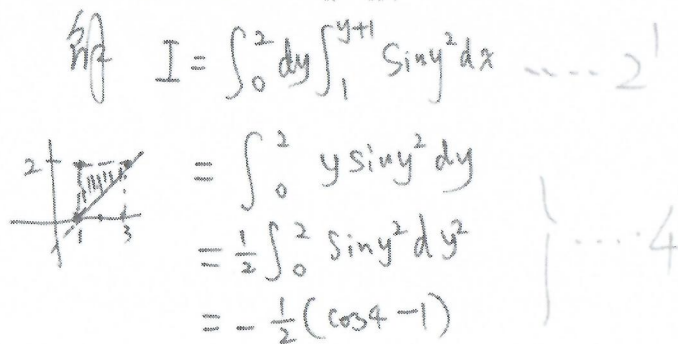 解 I = ∫₀² dy ∫₁^{y+1} sin y² dx ····· 2'
= ∫₀² y sin y² dy
= ½ ∫₀² sin y² dy² } ···· 4
= - ½ (cos4 - 1)
2
1 3